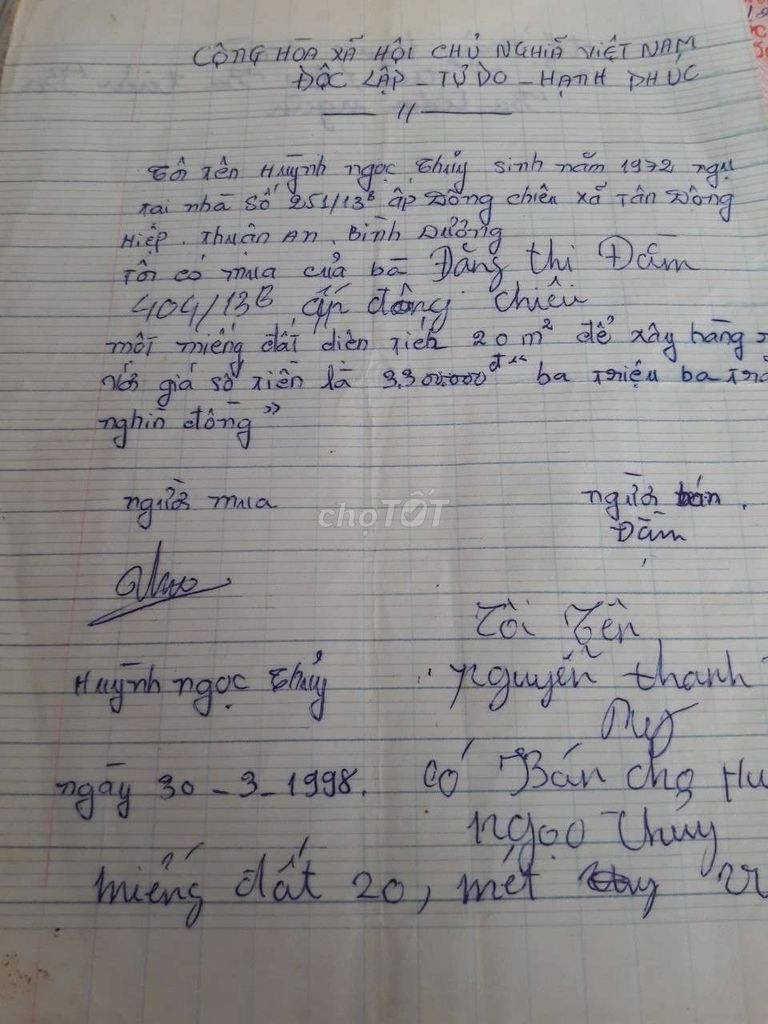 CỘNG HÒA XÃ HỘI CHỦ NGHĨA VIỆT NAM
ĐỘC LẬP - TỰ DO - HẠNH PHÚC
Tôi tên Huỳnh ngọc Thủy sinh năm 1972 ngụ
tại nhà số 251/13B ấp Đông chiêu xã Tân Đông
Hiệp. Thuận An. Bình Dương
Tôi có mua của bà Đặng thi Đầm
404/13B ấp đông chiêu
một miếng đất diện tích 20m² để xây bằng
với giá số tiền là 3,300.000đ ba triệu ba
nghìn đồng"
người mua
người bán.
Đầm
chợTỐT
Tôi Tên
Huỳnh ngọc Thủy
nguyễn thanh
ngày 30-3-1998.
có Bán cho
ngọc Thủy
miếng đất 20, mét